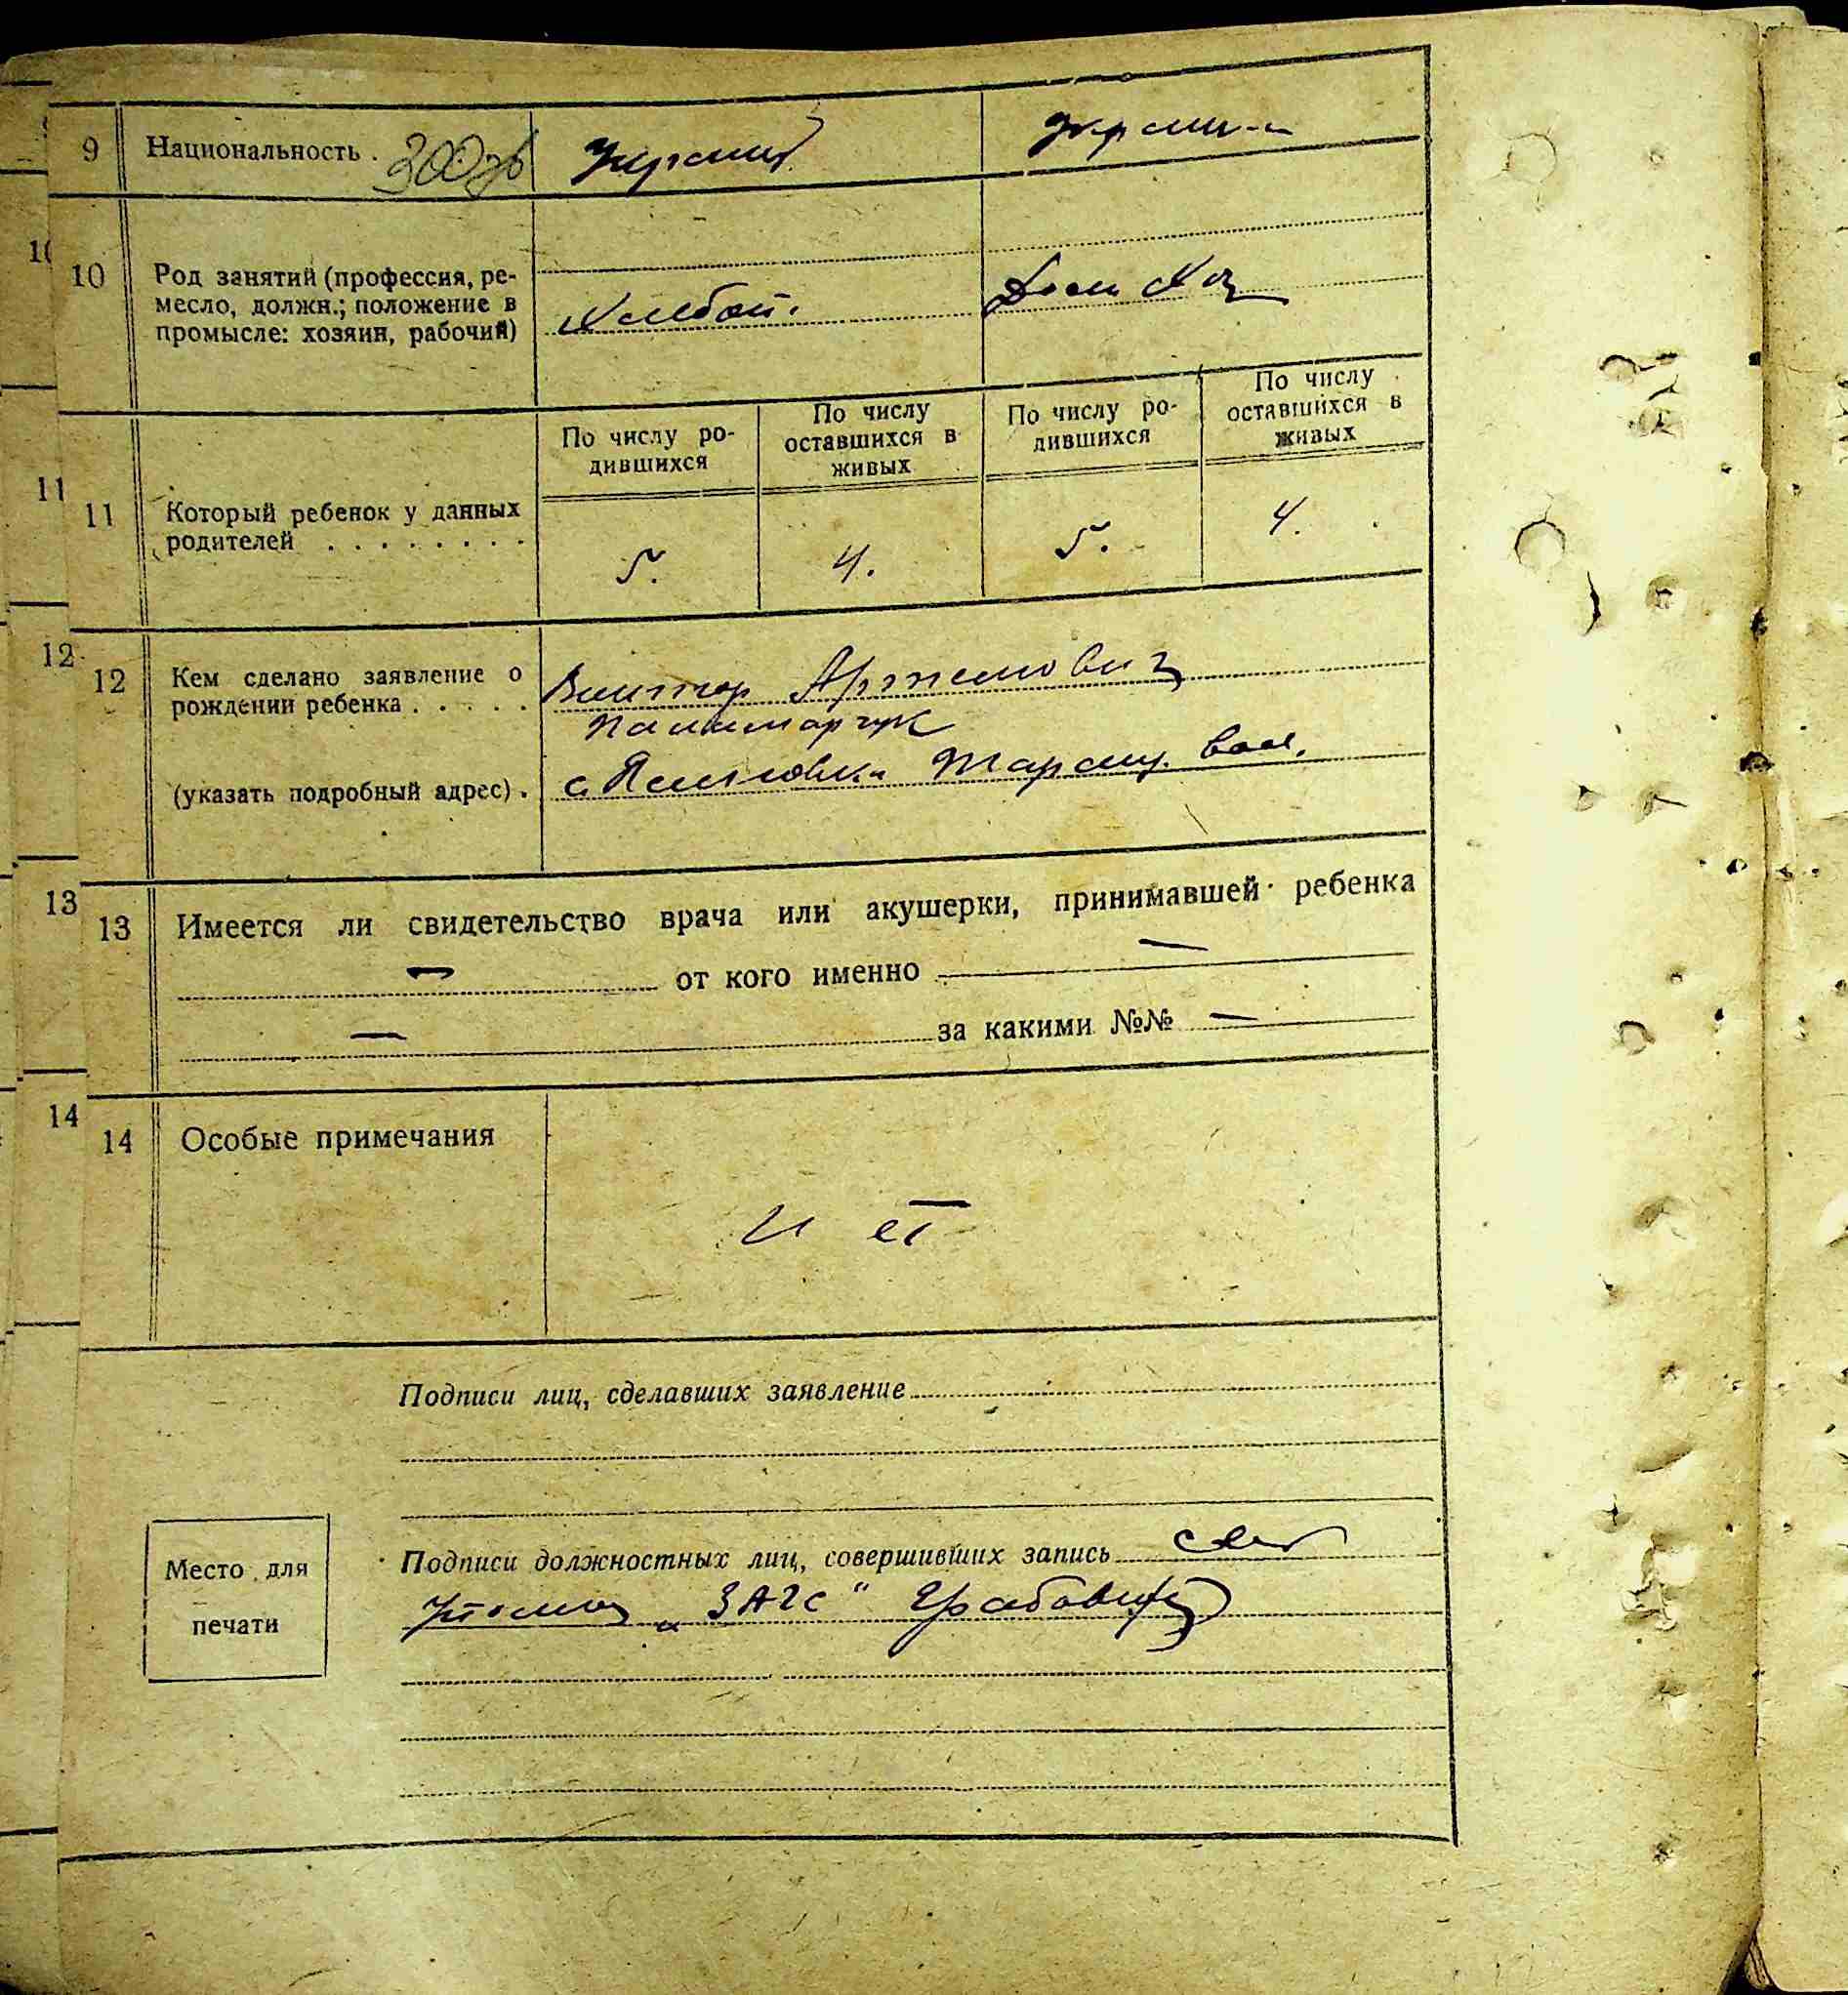 9 Национальность .
10
10 Род занятий (профессия, ре-
месло, должн.; положение в
промысле: хозяин, рабочий)
Хлебоп. Дом Хоз
По числу ро-
дившихся
По числу
оставшихся в
живых
По числу ро-
дившихся
По числу
оставшихся в
живых
11
11 Который ребенок у данных
родителей . . . . . . . .
5. 4. 5. 4.
12
12 Кем сделано заявление о
рождении ребенка . . . . .
Виктор Артемович
Паламарчук
(указать подробный адрес) .
13
13 Имеется ли свидетельство врача или акушерки, принимавшей ребенка
— от кого именно —
— за какими №№ —
14
14 Особые примечания
нет
Подписи лиц, сделавших заявление
Место для
печати
Подписи должностных лиц, совершивших запись
„ЗАГС“